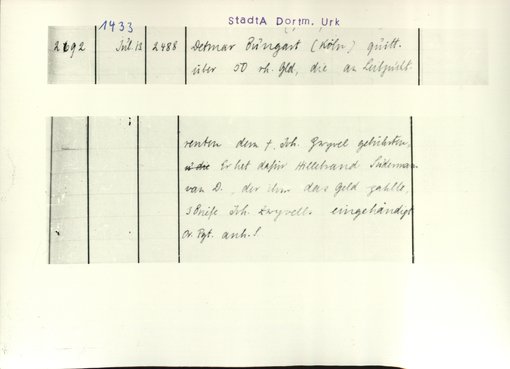 1433 StadtA Dortm. Urk
2692 Jul. 13 2488 Detmar Büngart (Köln) quitt.
über 50 rh. Gld, die an Leibzucht-
renten dem †. Joh. Zwyvel gebührten,
u die Er het dafür Hillebrand Sudermann
van D., der ihm das Geld zahlte,
3 Briefe Joh. Zwyvels eingehändigt
Or. Pgt. anh.!